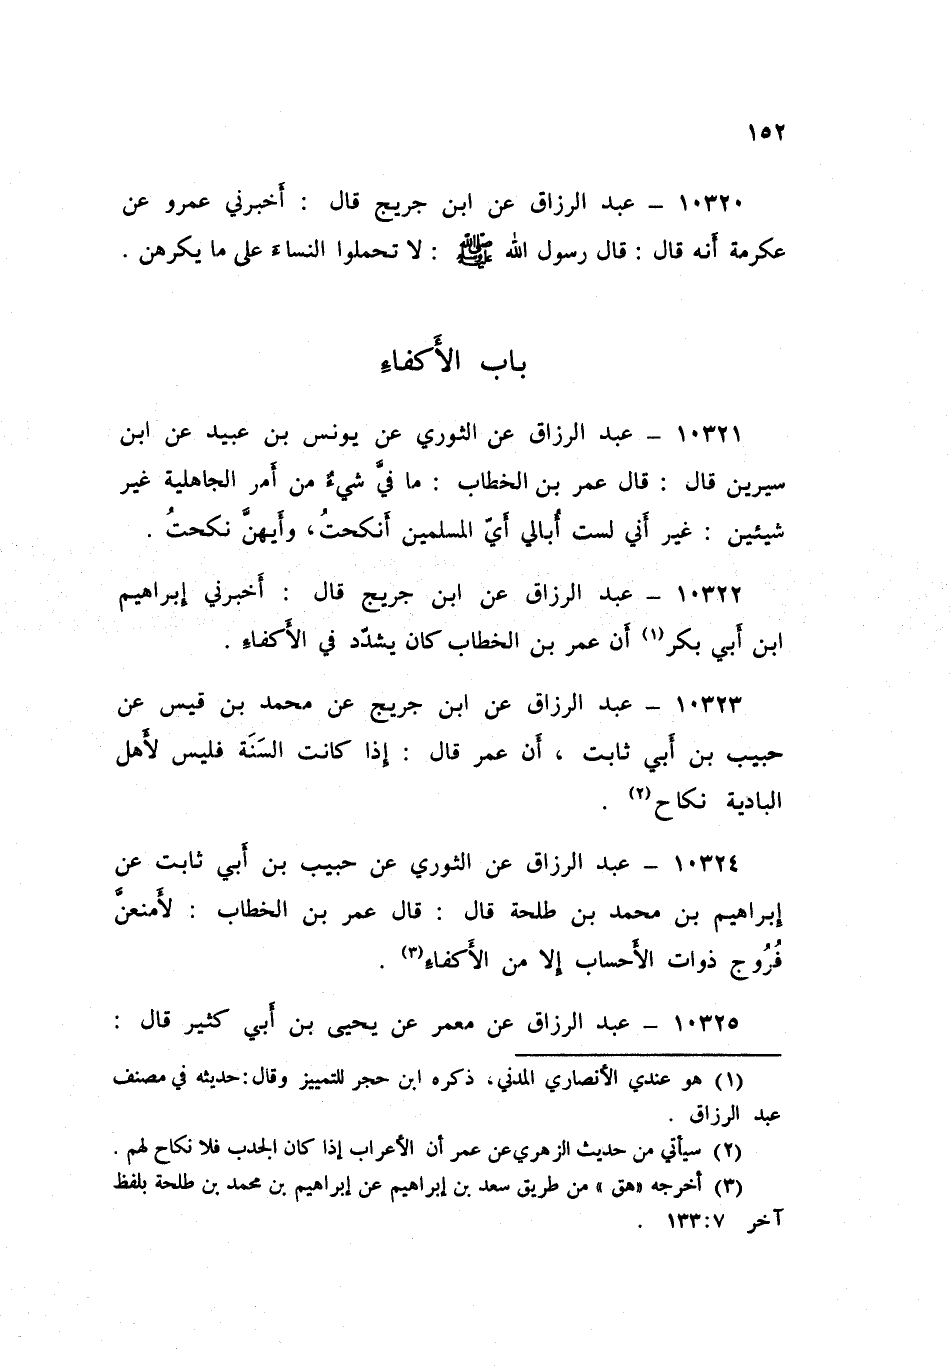 ١٥٢
١٠٣٢٠ – عبد الرزاق عن ابن جريج قال : أَخبرني عمرو عن
عكرمة أَنه قال : قال رسول الله ﷺ : لا تحملوا النساءَ على ما يكرهن .
باب الأَكفاءِ
١٠٣٢١ – عبد الرزاق عن الثوري عن يونس بن عبيد عن ابن
سيرين قال : قال عمر بن الخطاب : ما فيَّ شيءٌ من أَمر الجاهلية غير
شيئين : غير أَني لست أُبالي أَيّ المسلمين أَنكحتُ، وأَيهنَّ نكحتُ .
١٠٣٢٢ – عبد الرزاق عن ابن جريج قال : أَخبرني إِبراهيم
ابن أَبي بكر(١) أَن عمر بن الخطاب كان يشدّد في الأَكفاءِ .
١٠٣٢٣ – عبد الرزاق عن ابن جريج عن محمد بن قيس عن
حبيب بن أَبي ثابت ، أَن عمر قال : إِذا كانت السَنَة فليس لأَهل
البادية نكاح(٢) .
١٠٣٢٤ – عبد الرزاق عن الثوري عن حبيب بن أَبي ثابت عن
إِبراهيم بن محمد بن طلحة قال : قال عمر بن الخطاب : لأَمنعنَّ
فُرُوج ذوات الأَحساب إِلا من الأَكفاءِ(٣) .
١٠٣٢٥ – عبد الرزاق عن معمر عن يحيى بن أَبي كثير قال :
(١) هو عندي الأنصاري المدني، ذكره ابن حجر للتمييز وقال: حديثه في مصنف
عبد الرزاق .
(٢) سيأتي من حديث الزهري عن عمر أن الأعراب إذا كان الجدب فلا نكاح لهم .
(٣) أخرجه «هق» من طريق سعد بن إبراهيم عن إبراهيم بن محمد بن طلحة بلفظ
آخر ٧:١٣٣ .